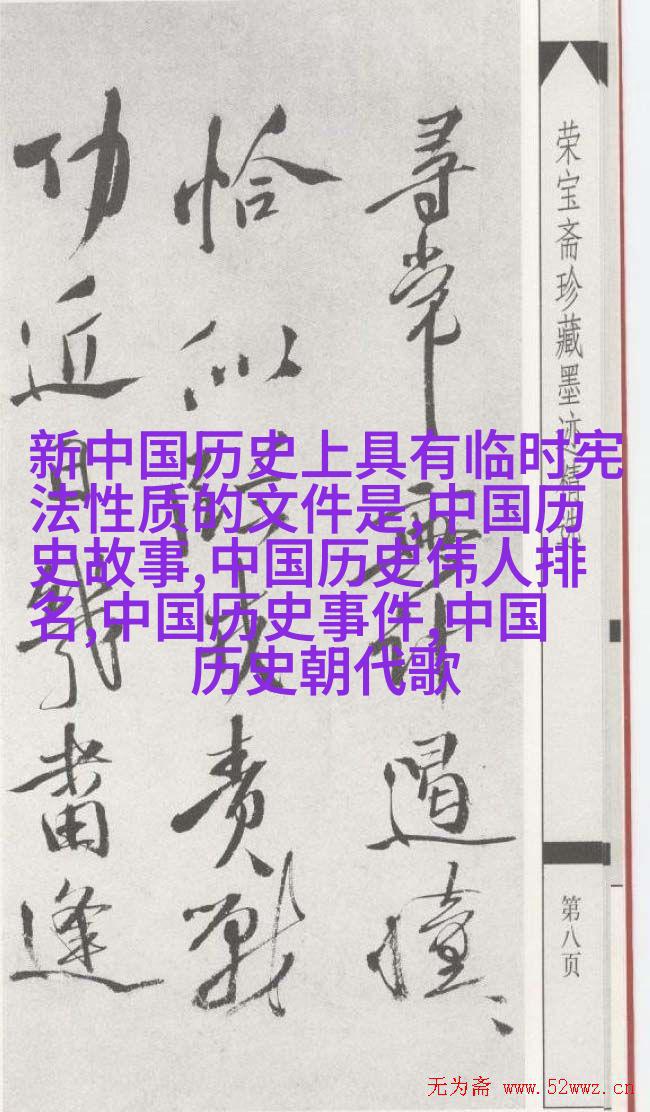 荣宝斋珍藏墨迹精选
第八页
尋常 計遏憧、
恰似 責戰
功近日 逢
新中国历史上具有临时宪
法性质的文件是,中国历
史故事,中国历史伟人排
名,中国历史事件,中国
历史朝代歌
无为斋 www.52wwz.cn